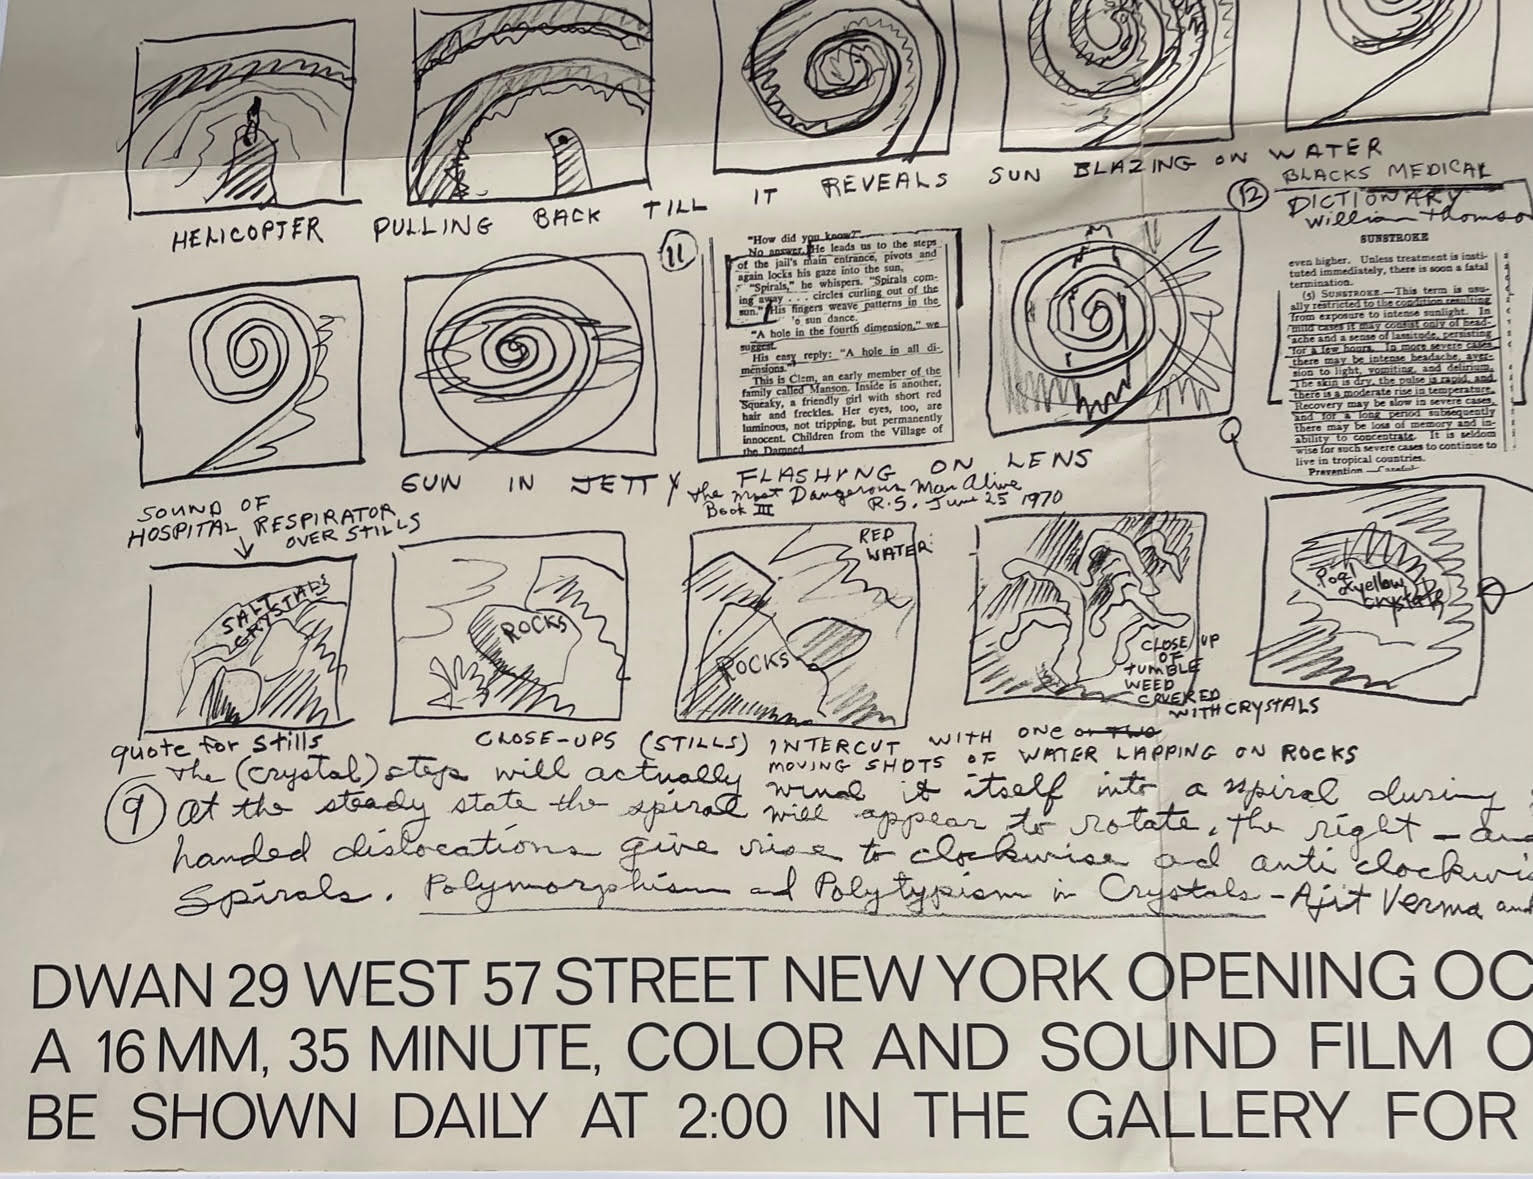 HELICOPTER PULLING BACK TILL IT REVEALS SUN BLAZING ON WATER
11
"How did you know?"
No answer. He leads us to the steps
of the jail's main entrance, pivots and
again locks his gaze into the sun.
"Spirals," he whispers. "Spirals com-
ing away . . . circles curling out of the
sun." His fingers weave patterns in the
'o sun dance.
"A hole in the fourth dimension," we
suggest.
His easy reply: "A hole in all di-
mensions."
This is Clem, an early member of the
family called Manson. Inside is another,
Squeaky, a friendly girl with short red
hair and freckles. Her eyes, too, are
luminous, not tripping, but permanently
innocent. Children from the Village of
the Damned
12
BLACKS MEDICAL
DICTIONARY
William Thomso
SUNSTROKE
even higher. Unless treatment is insti-
tuted immediately, there is soon a fatal
termination.
(5) SUNSTROKE.—This term is usu-
ally restricted to the condition resulting
from exposure to intense sunlight. In
mild cases it may consist only of head-
ache and a sense of lassitude, persisting
for a few hours. In more severe cases
there may be intense headache, aver-
sion to light, vomiting, and delirium.
The skin is dry, the pulse is rapid, and
there is a moderate rise in temperature.
Recovery may be slow in severe cases,
and for a long period subsequently
there may be loss of memory and in-
ability to concentrate. It is seldom
wise for such severe cases to continue to
live in tropical countries.
Prevention.—Careful
SUN IN JETTY FLASHING ON LENS
The Most Dangerous Man Alive
Book III R.S. June 25 1970
SOUND OF
HOSPITAL RESPIRATOR
OVER STILLS
SALT
CRYSTALS
ROCKS
RED
WATER
ROCKS
CLOSE/UP
OF
TUMBLE
WEED
COVERED
WITH CRYSTALS
yellow
crystals
quote for stills
CLOSE-UPS (STILLS) INTERCUT WITH ONE OR TWO
MOVING SHOTS OF WATER LAPPING ON ROCKS
9
The (crystal) steps will actually wind it itself into a spiral during
At the steady state the spiral will appear to rotate. The right - and
handed dislocations give rise to clockwise and anti clockwi
Spirals. Polymorphism and Polytypism in Crystals - Ajit Verma and
DWAN 29 WEST 57 STREET NEW YORK OPENING OC
A 16 MM, 35 MINUTE, COLOR AND SOUND FILM O
BE SHOWN DAILY AT 2:00 IN THE GALLERY FOR